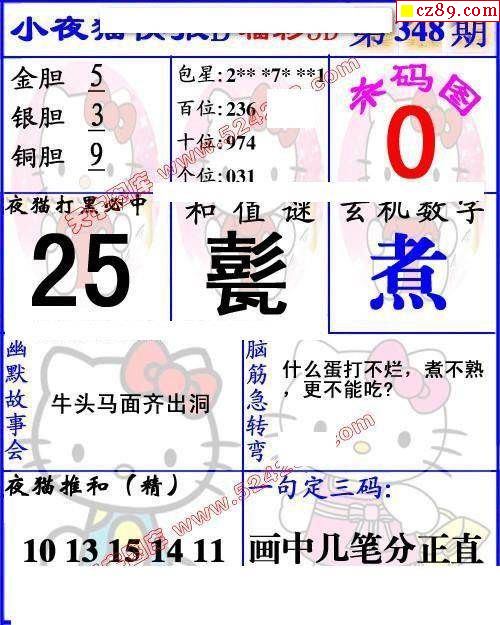 cz89.com
小夜猫快报D福彩3D 第348期
金胆 5
银胆 3
铜胆 9
包星：2** *7* **1
百位：236
十位：974
个位：031
杀码图
0
夜猫打黑必中
25
和值谜
髭
玄机数字
煮
幽默故事会
牛头马面齐出洞
脑筋急转弯
什么蛋打不烂，煮不熟
，更不能吃?
夜猫推和（精）
10 13 15 14 11
一句定三码：
画中几笔分正直